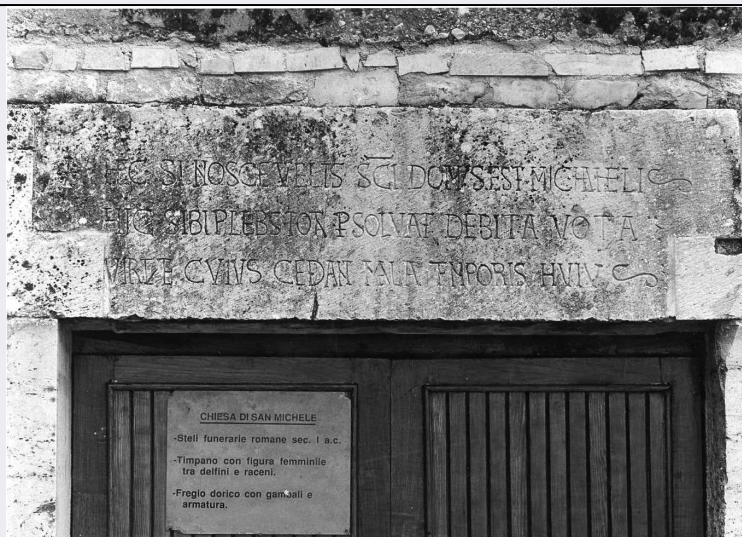 HEC SI NOSCE VELIS SCI DOM'S EST MICHAELI
HIC SIBI PLEBS TOTA PSOLVAT DEBITA VOTA
CVIVS CEDAN MALA TNPORIS HVIV
CHIESA DI SAN MICHELE
-Steli funerarie romane sec. I a.c.
-Timpano con figura femminile
tra delfini e raceni.
-Fregio dorico con gambali e
armatura.